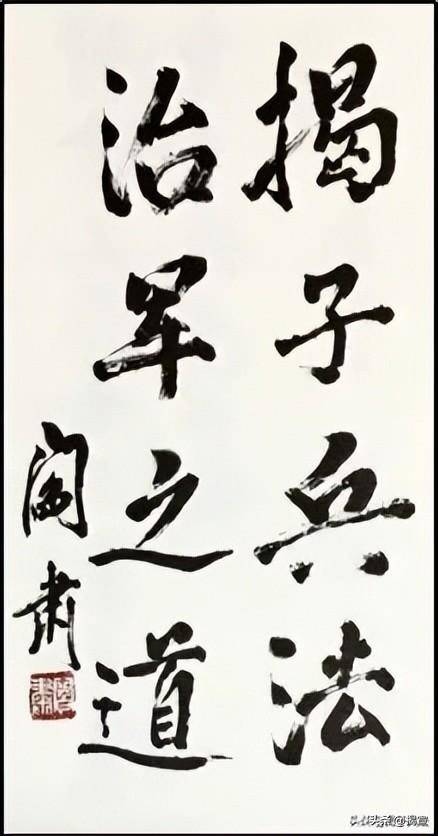 揭子兵法
治军之道
阎肃
头条@揭宣